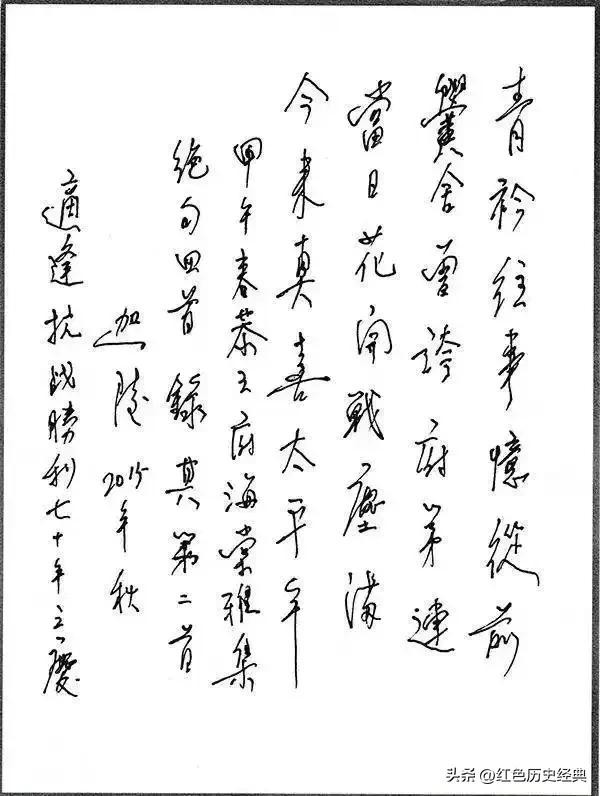 青衿往事憶從前
黌舍曾誇府第連
當日花開戰塵滿
今來真喜太平年
甲午春恭王府海棠雅集
絕句四首 錄其第二首
迦陵 2015年秋
適逢抗战勝利七十年之慶
头条 @红色历史经典